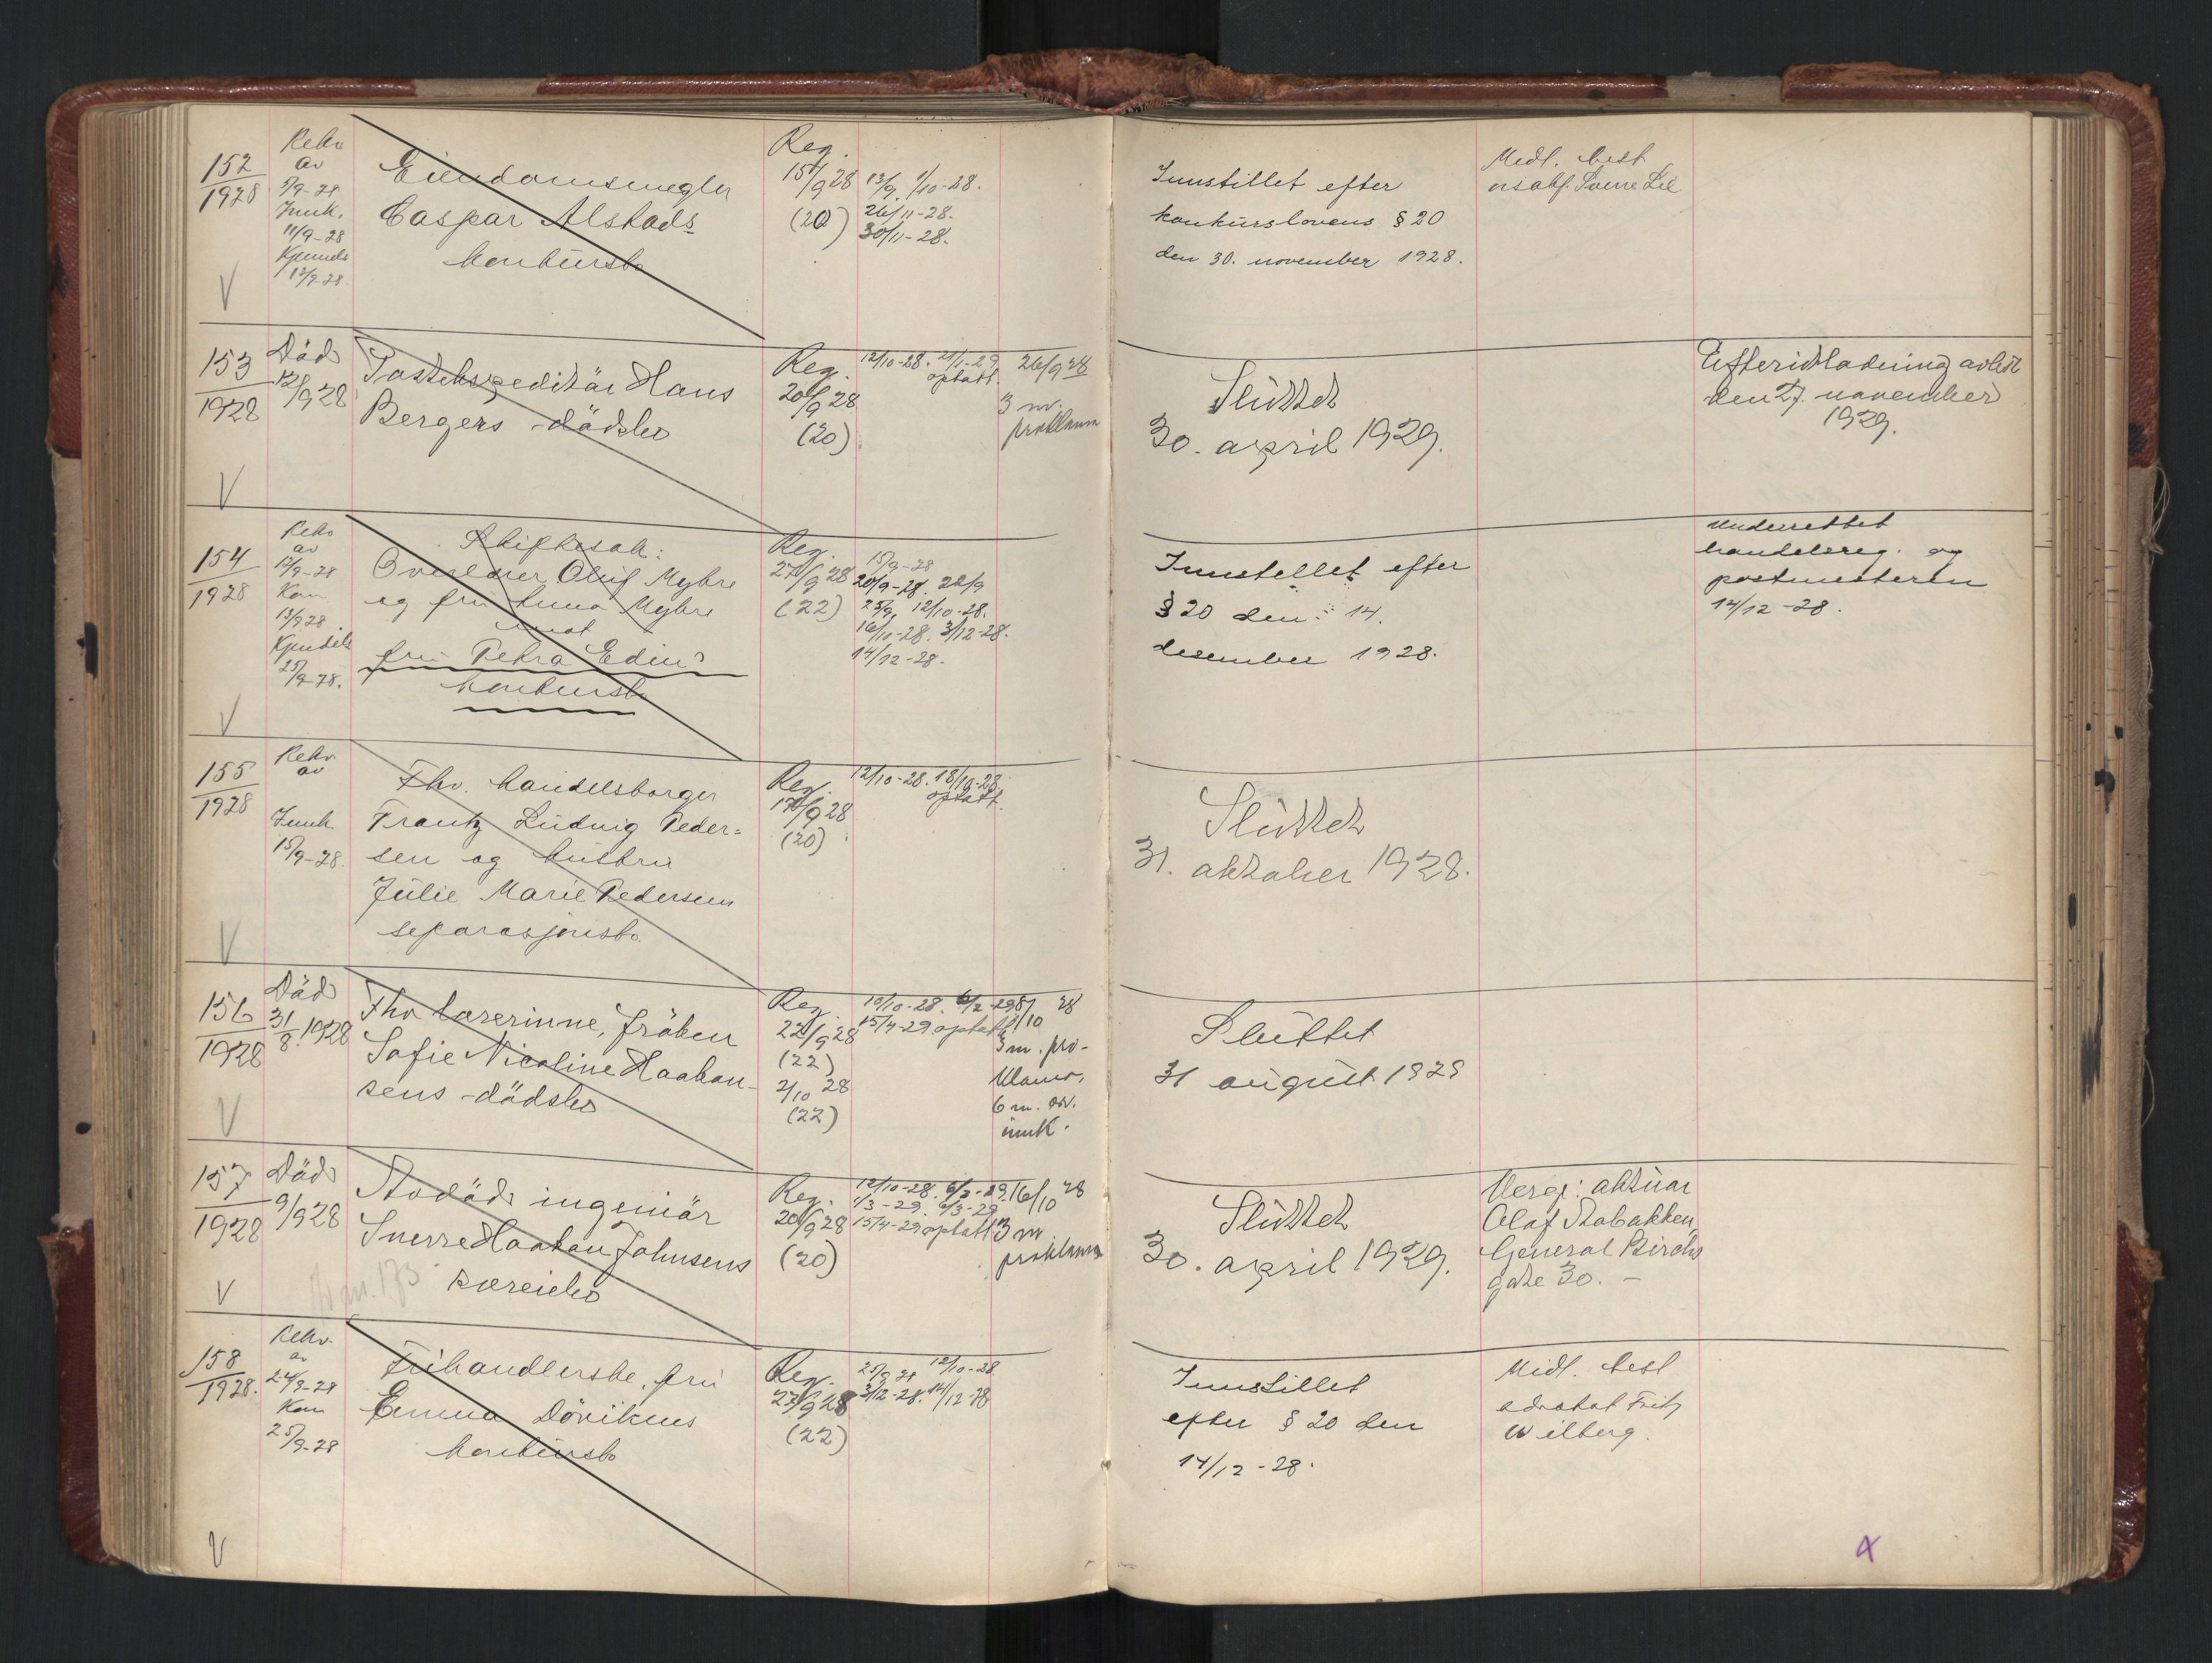 152
1928
Rekv
av
5/9-28
Innk.
11/9-28
Kjennels
12/9-28
V
Eiendomsmegler
Caspar Alstads
konkursbo
Reg.
15/9 28
(20)
13/9. 1/10-28.
26/11-28.
30/11-28.
Innstillet efter
konkurslovens § 20
den 30. november 1928.
Medl. best
Sverre Lie
153
1928
Död
12/9 28
V
Postekspeditör Hans
Bergers dödsbo
Reg.
20/9 28
(20)
12/10-28. 21/1-29
optatt.
26/9 28
3 m.
proklama
Sluttet
30. april 1929.
Efterutlodning avlest
den 27. november
1929.
154
1928
Rekv
av
12/9-28
Kom
13/9 28
Kjendels
25/9-28.
V
Skiftesak:
Oluf Myhre
og fru Anna Myhre
mot
fru Petra Edins
konkursbo
Reg.
27/9 28
(22)
15/9-28
20/9-28. 22/9
25/9. 12/10-28.
16/10-28. 3/12-28.
14/12-28.
Innstellet efter
§ 20 den 14.
desember 1928.
Underrettet
handelsreg. og
postmesteren
14/12-28.
155
1928
Rekv.
av
Innk
15/9-28.
V
Fhv. handelsborger
Frantz Ludvig Peder=
sen og hustru
Julie Marie Pedersens
separasjonsbo.
Reg.
17/9 28
(20)
12/10-28. 18/10-28
optatt.
Sluttet
31. oktober 1928.
156
1928
Död
31/8. 1928
V
Fhv lærerinne, fröken
Sofie Nicoline Haakon-
sens dödsbo
Reg.
22/9 28
(22)
2/10 28
(22)
10/10-28. 6/2-29
15/4-29 optatt
5/10 28
3 m. pro-
klama,
6 m. arv.
innk.
Sluttet
31 august 1929
157
1928
Död
9/9 28
V
Avdöd ingeniör
Sverre Haakon Johnsens
særeiebo
Reg.
20/9 28
(20)
12/10-28. 6/2-29.
1/3-29. 6/3-29
15/4-29 optatt
16/10 28
3 m
proklama
Sluttet
30. april 1929.
Verge: aktuar
Olaf Stabakken,
General Birchs
gate 30. -
158
1928.
Rekv.
av
24/9-28
Kom
25/9-28
V
Frihandlerske, fru
Emma Dövikens
konkursbo
Reg.
27/9 28
(22)
25/9 28 12/10-28
3/12-28. 14/12-28
Innstillet
efter § 20 den
14/12-28.
Midl. best
advokat Fritz
Wilberg.
x